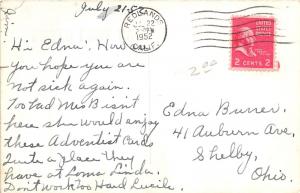 July 21-52
REDLANDS
22
1952
CALIF.
UNITED STATES
2 CENTS 2
200
Hi Edna! How
you hope you are
not sick again.
Too bad Ms B isn't
here she would enjoy
these Adventist Cards
Quite a place they
have at Loma Linda.
Don't work Too Hard Lucile.
Edna Burrer.
41 Auburn Ave,
Shelby,
Ohio.